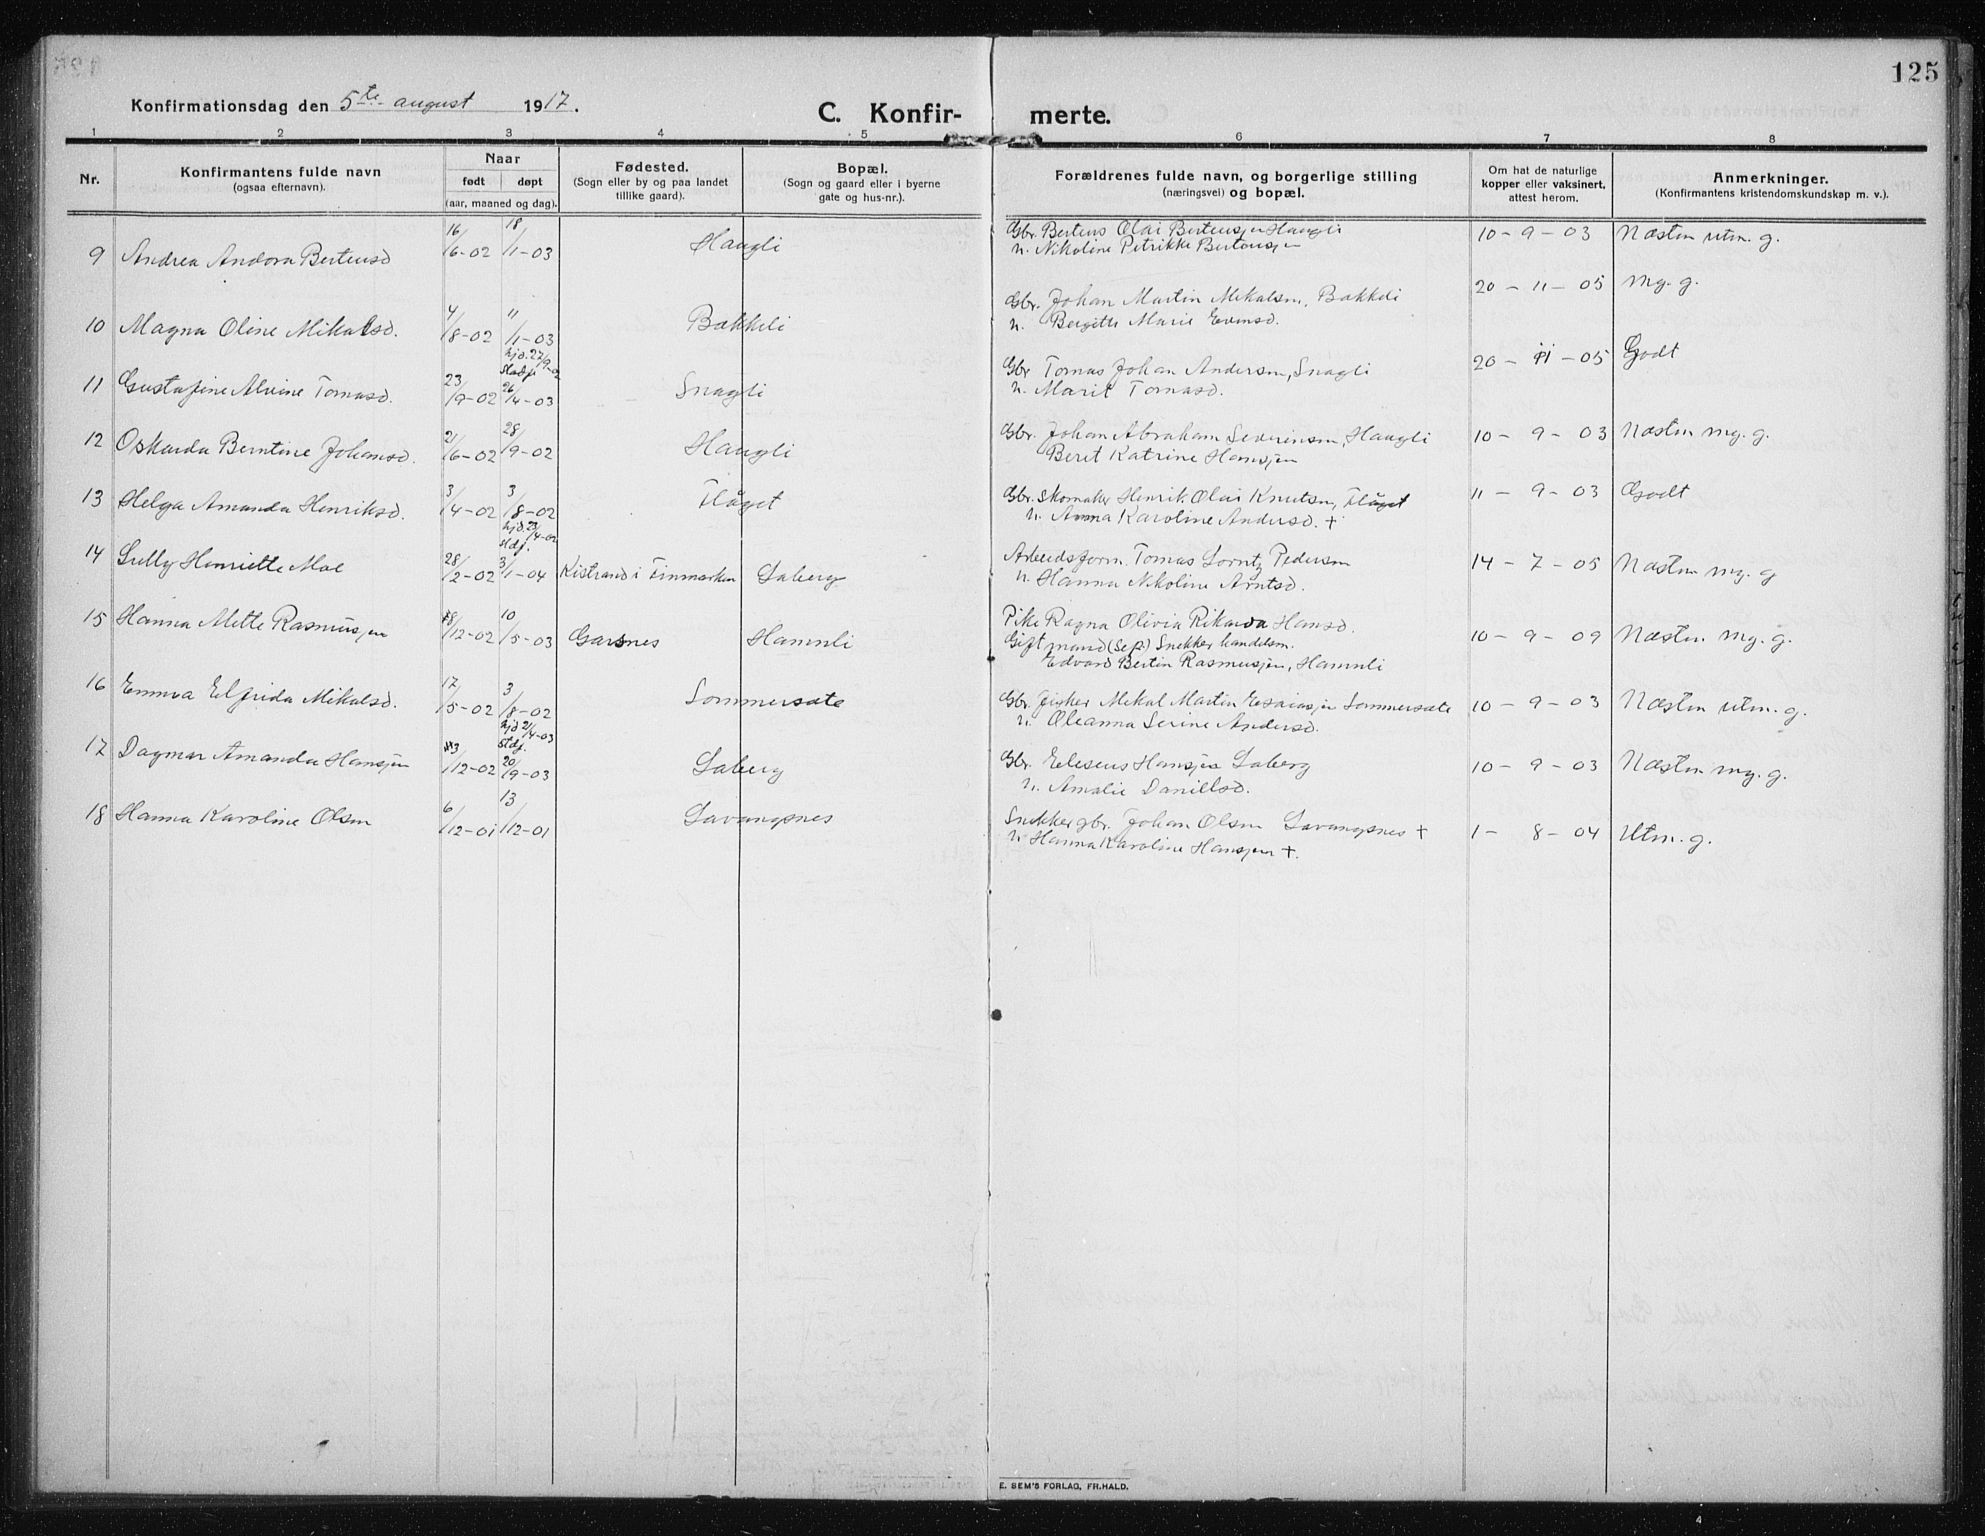 125
Konfirmationsdag den 5te august 1917.
C. Konfir- merte.
1 2 3 4 5 6 7 8
Nr.
Konfirmantens fulde navn
(ogsaa efternavn).
Naar
født døpt
(aar, maaned og dag).
Fødested.
(Sogn eller by og paa landet
tillike gaard).
Bopæl.
(Sogn og gaard eller i byerne
gate og hus-nr.).
Forældrenes fulde navn, og borgerlige stilling
(næringsvei) og bopæl.
Om hat de naturlige
kopper eller vaksinert,
attest herom.
Anmerkninger.
(Konfirmantens kristendomskundskap m. v.).
9 Andrea Andora Bertensd 16/6-02 18/1-03 Haugli
Gbr. Bertens Olai Bertensen Haugli
n. Nikoline Petrikke Bertensen
10-9-03 Næsten utm. g.
10 Magna Oline Mikalsd. 4/8-02 11/1-03 Bakkeli
Gbr. Johan Martin Mikalsen, Bakkeli
n. Bergitte Marie Evensd.
20-11-05 Mg. g.
11 Gustafine Alvine Tomasd. 23/9-02 hjd. 27/9-02 stadf. 26/4-03 Snagli
Gbr Tomas Johan Andersen, Snagli
n. Marit Tomasd.
20-11-05 Godt
12 Oskarda Berntine Johansd. 21/6-02 28/9-02 Haugli
Gbr. Johan Abraham Severinsen, Haugli
Beret Katrine Hansen
10-9-03 Næsten mg. g.
13 Helga Amanda Henriksd. 3/4-02 3/8-02 Flåget
Gbr. Skomaker Henrik Olai Knutsen, Flåget
n. Anna Karoline Andersd. +
11-9-03 Godt
14 Lully Henriette Moe 28/2-02 hjd. 23/4-02 stdf. 3/1-04 Kistrand i Finmarken Laberg
Arbeidsform. Tomas Lorntz Pedersen
n. Hanna Nikoline Arntsd.
14-7-05 Næsten mg. g
15 Hanna Mette Rasmussen 18/12-02 10/5-03 Garsnes Hamnli
Pike Ragna Olivia Rikarda Hansd.
Gift mand (Sep.) Snekker handelsm.
Edvard Bertin Rasmussen, Hamnli
10-9-09 Næsten mg. g.
16 Emma Elfrida Mikalsd. 17/5-02 3/8-02 Sommersæte
Gbr. fisker Mikal Martin Esaiassen Sommersæte
n. Oleanna Serine Andersd.
10-9-03 Næsten utm. g.
17 Dagmar Amanda Hansen 13/12-02 hjd 21/4-03 stdf. 20/9-03 Laberg
Gbr. Eleseus Hansen Laberg
n. Amalie Danillsd.
10-9-03 Næsten mg. g.
18 Hanna Karoline Olsen 6/12-01 13/12-01 Lavangsnes
Snekker gbr. Johan Olsen Lavangsnes +
n. Hanna Karoline Hansen +.
1-8-04 Utm. g.
E. SEM'S FORLAG, FR.HALD.
4